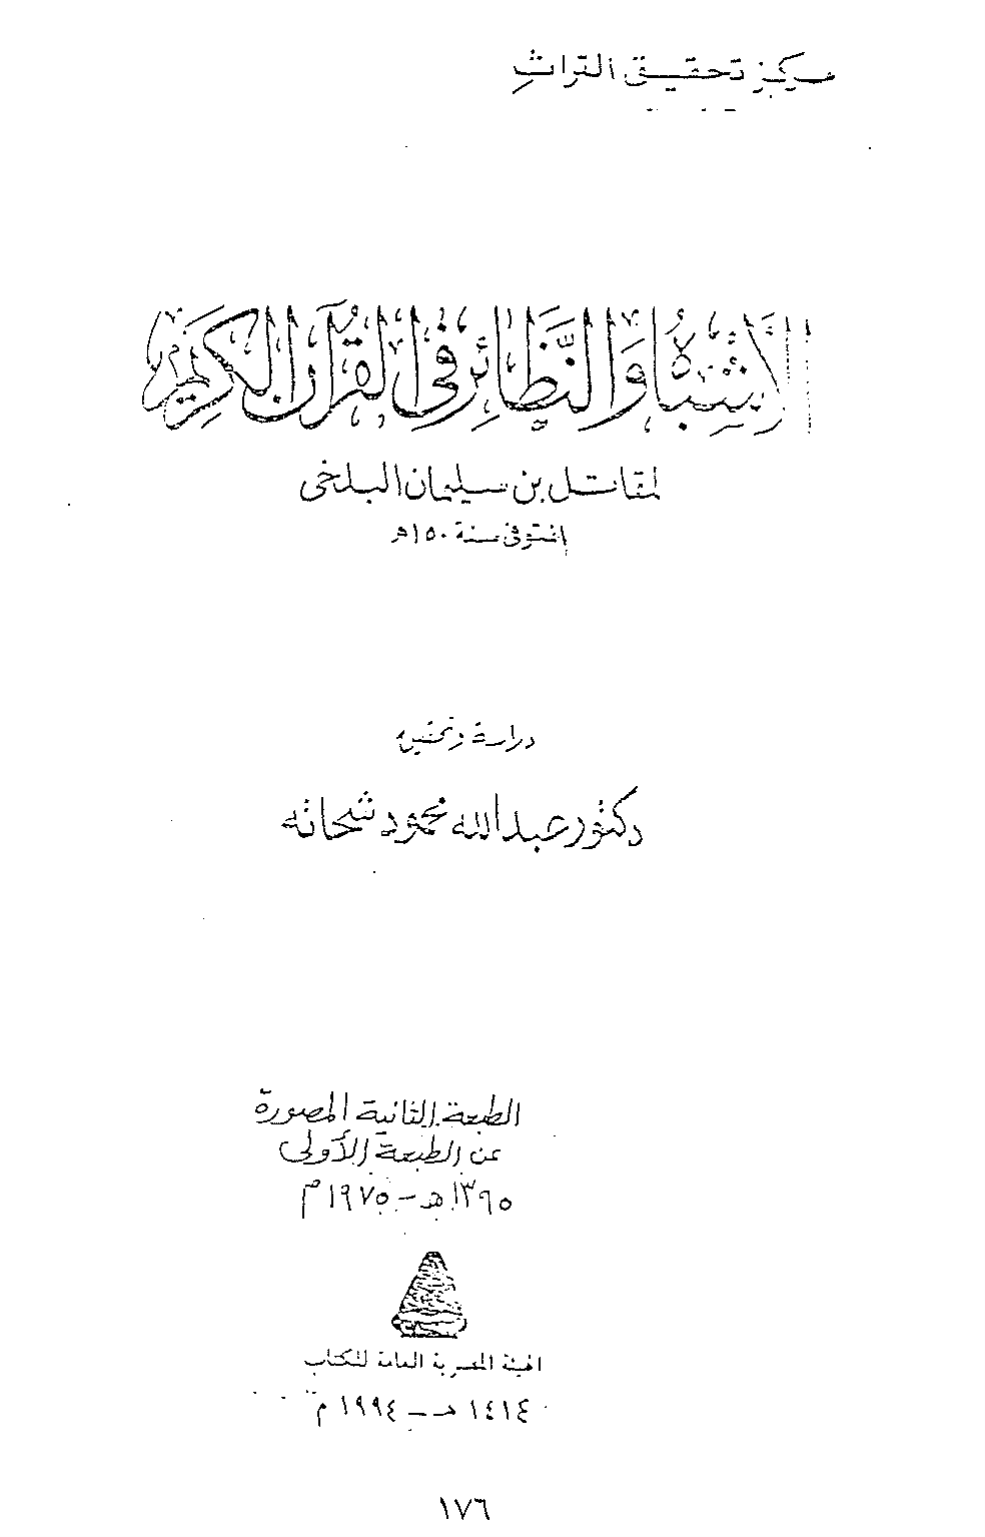 مركز تحقيق التراث
الأَشْبَاهُ وَالنَّظَائِرِ فِى القُرْآن الكَرِيْم
لمقاتل بن سليمان البلخى
المتوفى سنة ١٥٠هـ
دراسة وتحقيق
دكتور عبدالله محمود شحاته
الطبعة الثانية المصورة
عن الطبعة الأولى
١٣٩٥هـ - ١٩٧٥م
الهيئة المصرية العامة للكتاب
١٤١٤ هـ - ١٩٩٤ م
١٧٦